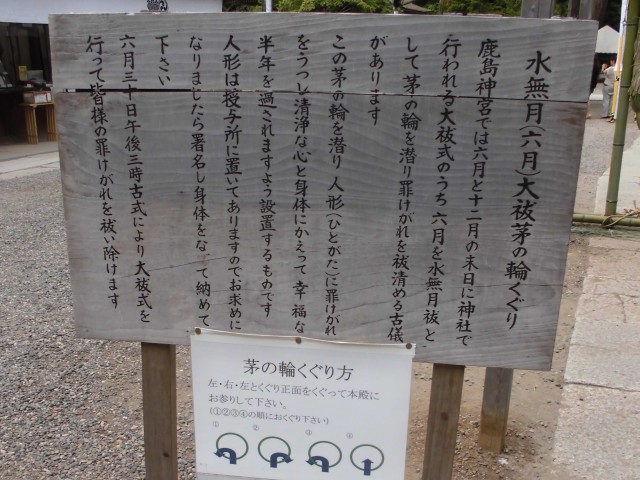 水無月(六月)大祓茅の輪くぐり
鹿島神宮では六月と十二月の末日に神社で
行われる大祓式のうち六月を水無月祓と
して茅の輪を潜り罪けがれを祓清める古儀
があります
この茅の輪を潜り人形(ひとがた)に罪けがれ
をうつし清浄な心と身体にかえって幸福な
半年を過されますよう設置するものです
人形は授与所に置いてありますのでお求めに
なりましたら署名し身体をなでて納めて
下さい
六月三十日午後三時古式により大祓式を
行って皆様の罪けがれを祓い除けます
茅の輪くぐり方
左・右・左とくぐり正面をくぐって本殿に
お参りして下さい。
(①②③④の順におくぐり下さい)
① ② ③ ④